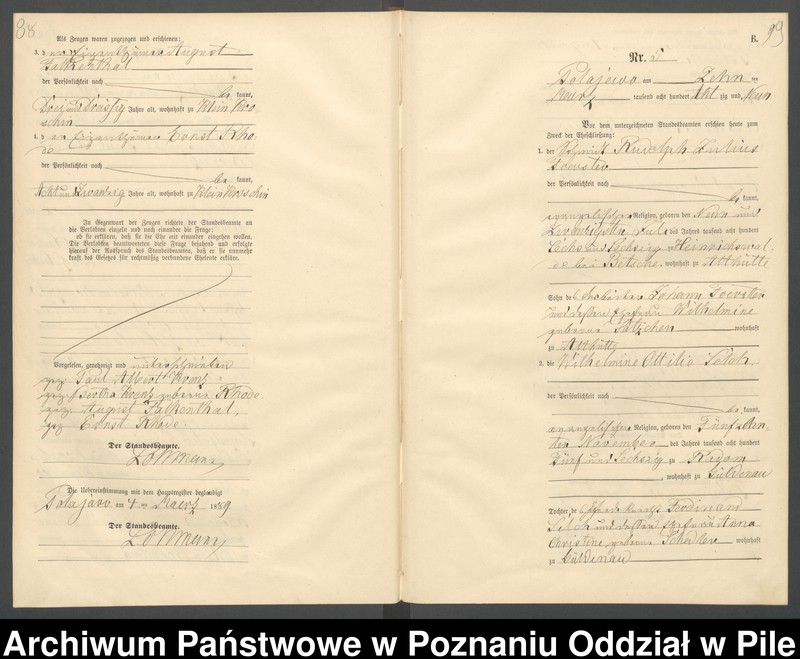 88
Als Zeugen waren zugezogen und erschienen:
3. der Eigenthümer August
Falkenthal
der Persönlichkeit nach
be kannt,
Drei und Dreißig Jahre alt, wohnhaft zu Klein Kro
schin
4. der Eigenthümer Ernst Rho
de
der Persönlichkeit nach
be kannt,
Acht und Zwanzig Jahre alt, wohnhaft zu Klein Kroschin
In Gegenwart der Zeugen richtete der Standesbeamte an
die Verlobten einzeln und nach einander die Frage:
ob sie erklären, daß sie die Ehe mit einander eingehen wollen.
Die Verlobten beantworteten diese Frage bejahend und erfolgte
hierauf der Ausspruch des Standesbeamten, daß er sie nunmehr
kraft des Gesetzes für rechtmäßig verbundene Eheleute erkläre.
Vorgelesen, genehmigt und unterschrieben
gez. Paul Albert Krenz
gez. Bertha Krenz geborne Rhode
gez. August Falkenthal.
gez. Ernst Rhode.
Der Standesbeamte.
Lohmann
Die Uebereinstimmung mit dem Hauptregister beglaubigt
Polajewo am 4 ten Maerz 1889
Der Standesbeamte.
Lohmann
B.
Nr.
Polajewo am Zehn ten
Maerz tausend acht hundert Acht zig und Neun
Vor dem unterzeichneten Standesbeamten erschien heute zum
Zweck der Eheschließung:
1. der Rudolph Julius
Foerster
der Persönlichkeit nach
be kannt,
evangelischer Religion, geboren den Neun und
Zwanzigsten des Jahres tausend acht hundert
Sechs und Sechszig zu Heinrichswal
de bei Betsche, wohnhaft zu Althütte
Sohn des Johann Foerster
und dessen Ehefrau Wilhelmine
geborne wohnhaft
zu Althütte
2. die Wilhelmine Ottilie
der Persönlichkeit nach
be kannt,
evangelischer Religion, geboren den Fünfzehn
ten November des Jahres tausend acht hundert
Fünf und Sechszig zu
, wohnhaft zu Güldenau
Tochter des Ferdinand
und dessen Ehefrau Anna
Christine geborne wohnhaft
zu Güldenau
Archiwum Państwowe w Poznaniu Oddział w Pile